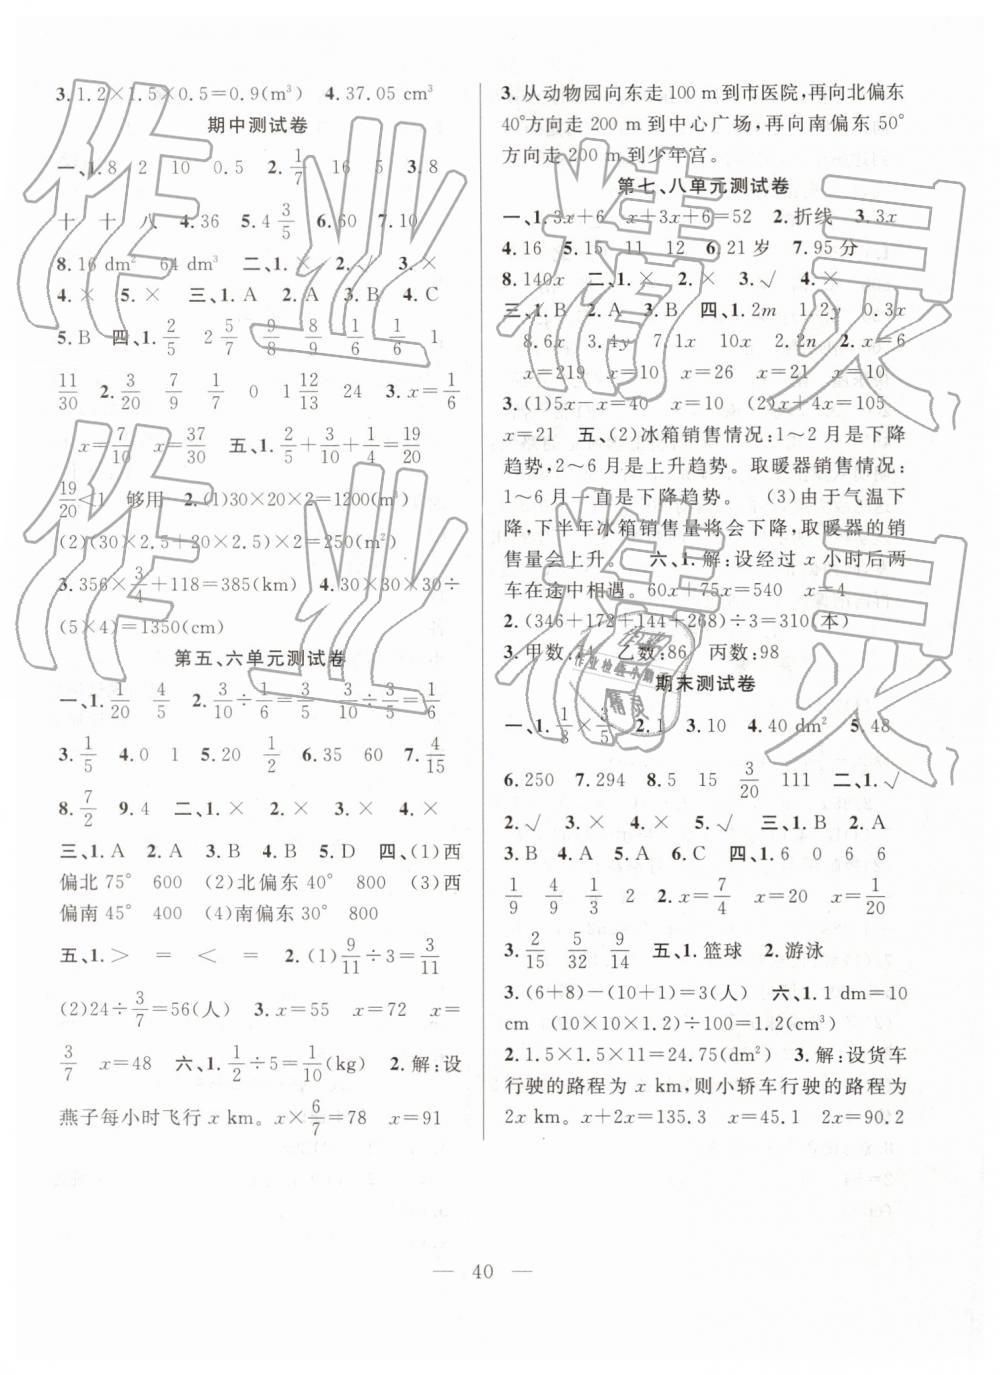 3.1.2×1.5×0.5=0.9(m³)　4.37.05 cm³
期中测试卷
一、1.8　2　10　0.5　2.1/7　16　5　3.8
十　十　八　4.36　5.4 3/5　6.60　7.10
8.16 dm²　64 dm³　二、1.×　2.√　3.×
4.×　5.×　三、1.A　2.A　3.B　4.C
5.B　四、1.2/5　2 5/7　9/8　8/9　1/6　1/6　1
11/30　2.3/20　7/9　1/7　0　1 12/13　24　3.x=1/6
x=7/10　x=37/30　五、1.2/5+3/10+1/4=19/20
19/20<1　够用　2.(1)30×20×2=1200(m³)
(2)(30×2.5+20×2.5)×2=250(m²)
3.356×3/4+118=385(km)　4.30×30×30÷
(5×4)=1350(cm)
第五、六单元测试卷
一、1.1/20　4/5　2.3/10÷1/6　3/10÷3/5　3/5÷1/6
3.1/5　4.0　1　5.20　1/2　6.35　60　7.4/15
8.7/2　9.4　二、1.×　2.×　3.×　4.×
三、1.A　2.A　3.B　4.B　5.D　四、(1)西
偏北75°　600　(2)北偏东40°　800　(3)西
偏南45°　400　(4)南偏东30°　800
五、1.>　=　<　=　2.(1)9/11÷3=3/11
(2)24÷3/7=56(人)　3.x=55　x=72　x=
3/7　x=48　六、1.1/2÷5=1/10(kg)　2.解:设
燕子每小时飞行 x km。x×6/7=78　x=91
3.从动物园向东走 100 m 到市医院,再向北偏东
40°方向走 200 m 到中心广场,再向南偏东 50°
方向走 200 m 到少年宫。
第七、八单元测试卷
一、1.3x+6　x+3x+6=52　2.折线　3.3x
4.16　5.15　11　12　6.21 岁　7.95 分
8.140x　二、1.×　2.×　3.√　4.×
三、1.B　2.A　3.B　四、1.2m　1.2y　0.3x
8.6x　3.4y　7.1x　10x　2.2n　2.x=6
x=219　x=10　x=26　x=21　x=10
3.(1)5x-x=40　x=10　(2)x+4x=105
x=21　五、(2)冰箱销售情况:1～2月是下降
趋势,2～6月是上升趋势。取暖器销售情况:
1～6月一直是下降趋势。　(3)由于气温下
降,下半年冰箱销售量将会下降,取暖器的销
售量会上升。　六、1.解:设经过 x 小时后两
车在途中相遇。60x+75x=540　x=4
2.(346+172+144+268)÷3=310(本)
3.甲数:　乙数:86　丙数:98
期末测试卷
一、1.1/8×3/5　2.1　3.10　4.40 dm²　5.48
6.250　7.294　8.5　15　3/20　111　二、1.√
2.√　3.×　4.×　5.√　三、1.B　2.A
3.B　4.A　5.A　6.C　四、1.6　0　6　6
1/9　4/9　1/3　2　2.x=7/4　x=20　x=1/20
3.2/15　5/32　9/14　五、1.篮球　2.游泳
3.(6+8)-(10+1)=3(人)　六、1.1 dm=10
cm　(10×10×1.2)÷100=1.2(cm³)
2.1.5×1.5×11=24.75(dm²)　3.解:设货车
行驶的路程为 x km,则小轿车行驶的路程为
2x km。x+2x=135.3　x=45.1　2x=90.2
— 40 —
作业精灵
作业精灵
作业检查小帮
精灵